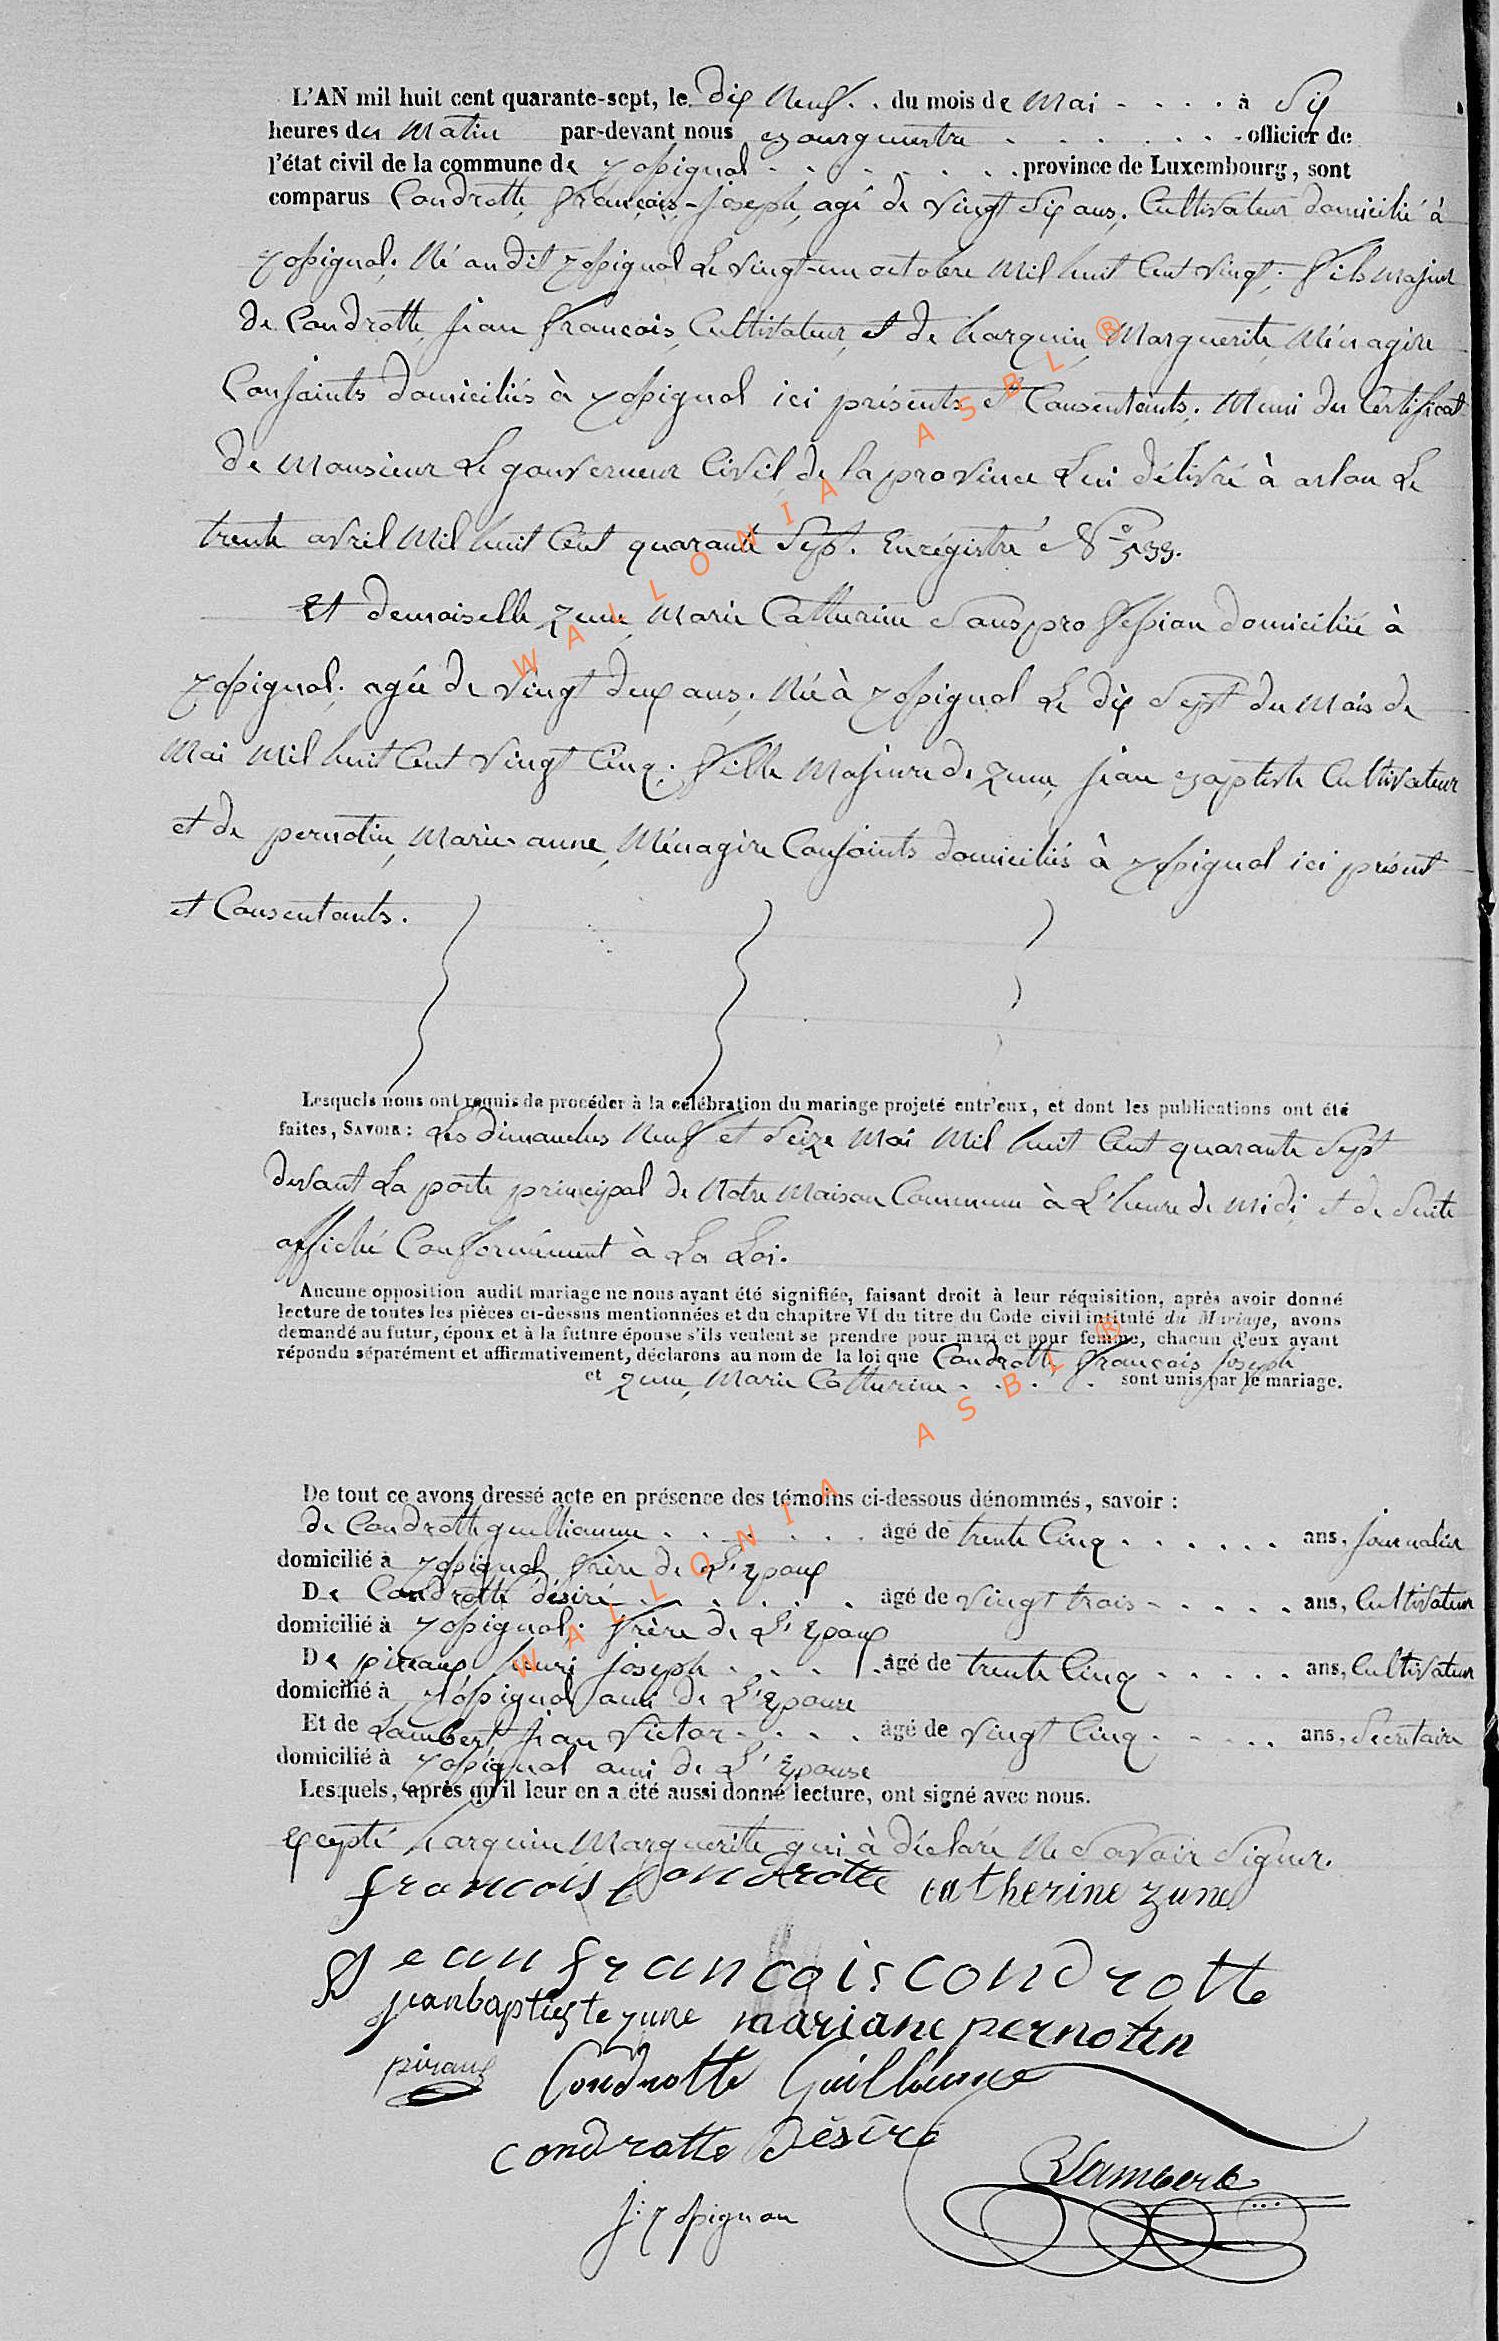 L'AN mil huit cent quarante-sept, le dix Neuf . . du mois de Mai - . . . . à Six
heures du Matin par-devant nous Bourgmestre . . . . . . . officier de
l'état civil de la commune de . . . . . . province de Luxembourg, sont
comparus Condrotte, françois-joseph, agé de vingt Six ans, Cultivateur domicilié à
Né audit Le vingt-un octobre Mil huit Cent vingt; fils Majeur
de Condrotte, jean françois, Cultivateur, et de harquin, Marguerite, Ménagère
Conjoints domiciliés à ici présents et Consentants. Muni du Certificat
de Monsieur Le gouverneur Civil, de la province Lui délivré à arlon Le
trente avril Mil huit Cent quarante Sept. Enrégistré N° 533.
Et demoiselle zune, Marie Catherine Sans profession domiciliée à
agée de vingt deux ans, Née à Le dix Sept du Mois de
Mai Mil huit Cent vingt Cinq; fille Majeure de zune, jean Baptiste Cultivateur
et de pernotin, Marie-anne, Ménagère Conjoints domiciliés à ici présent
et Consentants.
Lesquels nous ont requis de procéder à la célébration du mariage projeté entr'eux, et dont les publications ont été
faites, SAVOIR: Les dimanches Neuf et Seize Mai Mil huit Cent quarante Sept
devant La porte principal de Notre Maison Commune à L'heure de Midi et de Suite
affiché Conformément à La Loi.
Aucune opposition audit mariage ne nous ayant été signifiée, faisant droit à leur réquisition, après avoir donné
lecture de toutes les pièces ci-dessus mentionnées et du chapitre VI du titre du Code civil intitulé du Mariage, avons
demandé au futur, époux et à la future épouse s'ils veulent se prendre pour mari et pour femme, chacun d'eux ayant
répondu séparément et affirmativement, déclarons au nom de la loi que Condrotte, françois joseph
et zune, Marie Catherine . . . . . sont unis par le mariage.
De tout ce avons dressé acte en présence des témoins ci-dessous dénommés, savoir :
de Condrotte guilliaume . . . . . . . âgé de trente Cinq . . . . . . ans, journalier
domicilié à frère de L'Epoux
De Condrotte désiré . . . . . . âgé de vingt trois - . . . . ans, Cultivateur
domicilié à frère de L'Epoux
De piraux, henri joseph . . . . . âgé de trente Cinq . . . . . ans, Cultivateur
domicilié à ami de L'Epouse
Et de Lambert, jean Victor . . . . âgé de vingt Cinq . . . . . ans, Secrétaire
domicilié à ami de L'Epouse
Lesquels, après qu'il leur en a été aussi donné lecture, ont signé avec nous.
Excepté harquin Marguerite qui à déclaré Ne Savoir Signer.
francois Condrotte catherine zune
Jean francois condrotte
jean baptiste zune mariane pernotin
piraux Condrotte Guillaume
condrotte Désiré
Lambert
WALLONIA ASBL ®
WALLONIA ASBL ®